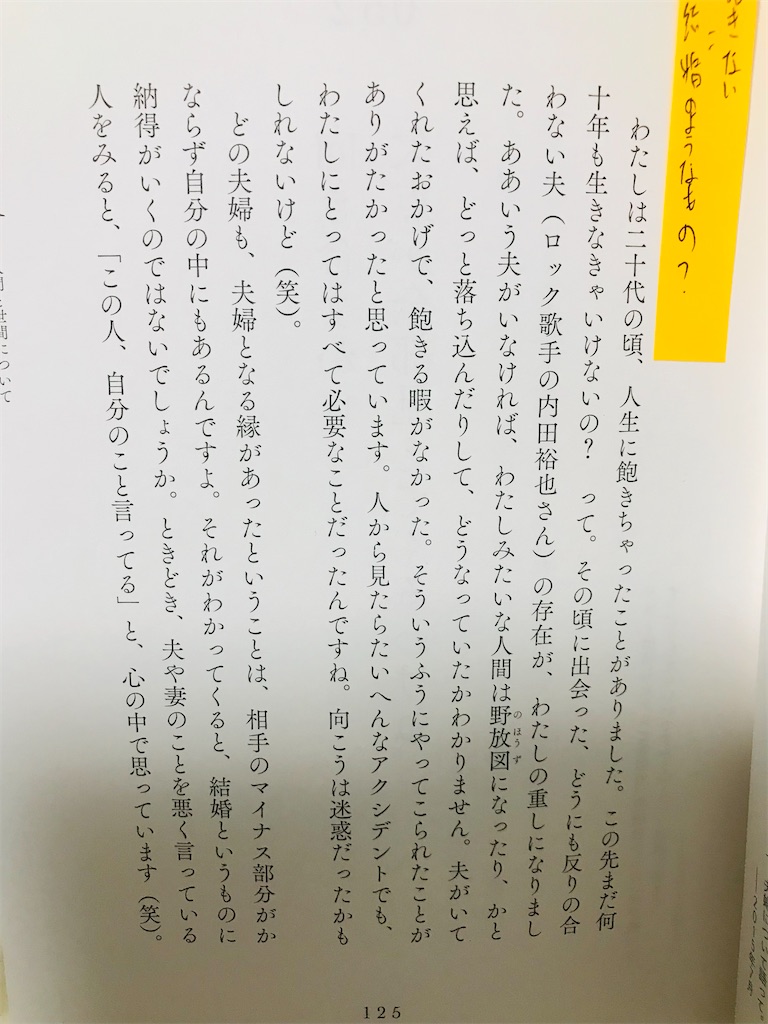 きない
結婚のようなもの?
わたしは二十代の頃、人生に飽きちゃったことがありました。この先まだ何
十年も生きなきゃいけないの? って。その頃に出会った、どうにも反りの合
わない夫(ロック歌手の内田裕也さん)の存在が、わたしの重しになりまし
た。ああいう夫がいなければ、わたしみたいな人間は野放図になったり、かと
のほうず
思えば、どっと落ち込んだりして、どうなっていたかわかりません。夫がいて
くれたおかげで、飽きる暇がなかった。そういうふうにやってこられたことが
ありがたかったと思っています。人から見たらたいへんなアクシデントでも、
わたしにとってはすべて必要なことだったんですね。向こうは迷惑だったかも
しれないけど(笑)。
どの夫婦も、夫婦となる縁があったということは、相手のマイナス部分がか
ならず自分の中にもあるんですよ。それがわかってくると、結婚というものに
納得がいくのではないでしょうか。ときどき、夫や妻のことを悪く言っている
人をみると、「この人、自分のこと言ってる」と、心の中で思っています(笑)。
世間について
125